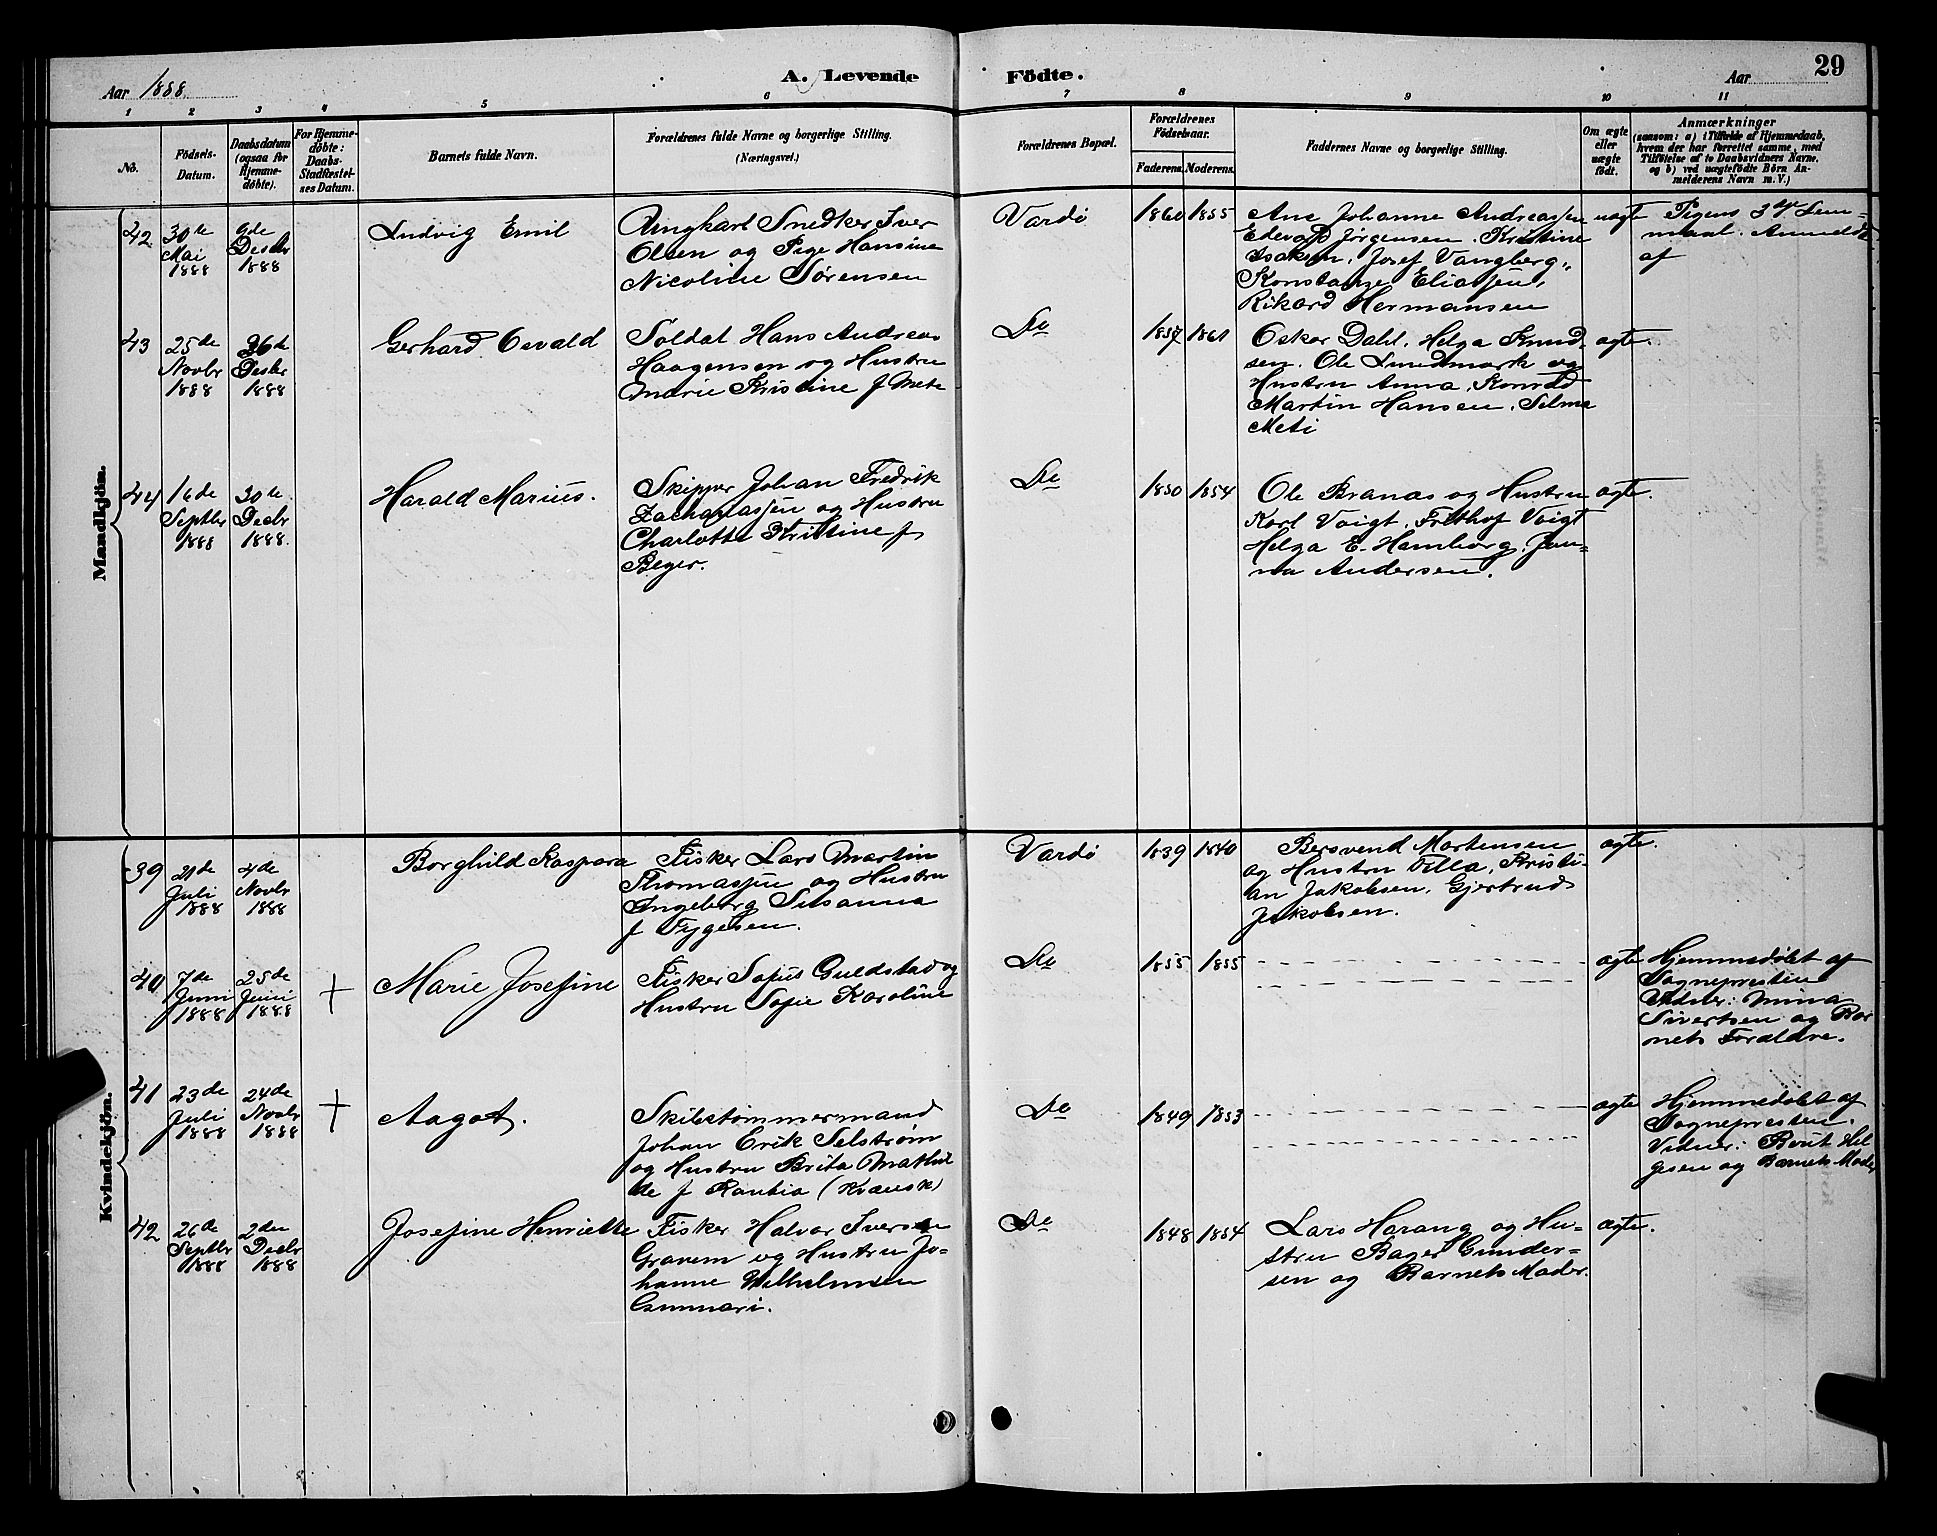 Aar 1888
A. Levende
Födte.
Aar
29
1 2 3 4 5 6 7 8 9 10 11
No.
Födsels-
Datum.
Daabsdatum
(ogsaa for
Hjemme-
döbte).
For Hjemme-
döbte:
Daabs-
Stadfæstel-
ses Datum.
Barnets fulde Navn.
Forældrenes fulde Navne og borgerlige Stilling.
(Næringsvei.)
Forældrenes Bopæl.
Forældrenes
Födselsaar.
Faderens. Moderens.
Faddernes Navne og borgerlige Stilling.
Om ægte
eller
uægte
födt.
Anmærkninger
(saasom: a) i Tilfælde af Hjemmedaab,
hvem der har forrettet samme, med
Tilföielse af to Daabsvidners Navne,
og b) ved uægtefödte Börn An-
melderens Navn m. V.)
Mandkjön.
42
30te
Mai
1888
9de
Desbr
1888
Ludvig Emil
Ungkarl Snedker Iver
Olsen og Pige Hansine
Nicoline Sørensen
Vardø
1860 1855
Ane Johanne Andreassen
Edevard Jørgensen. Kristine
Isaksen, Josef Vangberg,
Konstanse Eliassen,
Rikard Hermansen
uagte
Pigens 3die Leier-
maal. Anmeldt
af
43
25de
Novbr
1888
26de
Desbr
1888
Gerhard Osvald
Soldat Hans Andreas
Haagensen og Hustru
Marie Kristine f Mete
Do
1857 1861
Oskar Dahl. Helga Knud-
sen. Ole Lundmark og
Hustru Anna, Konrad
Martin Hansen. Selma
Meti
agte.
44
16de
Septbr
1888
30te
Desbr
1888.
Harald Marius.
Skipper Johan Fredrik
Zachariassen og Hustru
Charlotte Kristine f
Beyer.
Do
1850 1854
Ole Branas og Hustru
Karl Voigt. Frithof Voigt
Helga E. Hamborg. Jon-
na Andersen.
agte.
Kvindekjön.
39
21de
Juli
1888
4de
Novbr
1888
Borghild Kaspara
Fisker Lars Martin
Thomassen og Hustru
Ingeborg Susanna
f Tygesen.
Vardø
1839 1840
Bersvend Mortensen
og Hustru Tilla, Kristi-
an Jakobsen. Gjertrud
Jakobsen.
agte.
40
7de
Juni
1888
25de
Juni
1888
+
Marie Josefine
Fisker Sofus Guldstad og
Hustru Sofie Karoline
Do
1855 1855
agte
Hjemmedøbt af
Sognepresten
Vidner: Mina
Sivertsen og Bar
nets Forældre.
41
23de
Juli
1888
24de
Novbr
1888
+
Aagot.
Skibstømmermand
Johan Erik Selstrøm
og Hustru Brita Mathil
de f Rautia (Kvænsk)
Do
1849 1853
agte
Hjemmedøbt af
Sognepresten.
Vidner: Berit Hel
gesen og Barnets Moder
42
26de
Septbr
1888
2den
Decbr
1888
Josefine Henriette
Fisker Halvor Iversen
Gravem og Hustru Jo-
hanne Wilhelmsen
Gammari.
Do
1848 1854
Lars Harang og Hu-
stru Bager Gunder-
sen og Barnets Moder.
ægte.